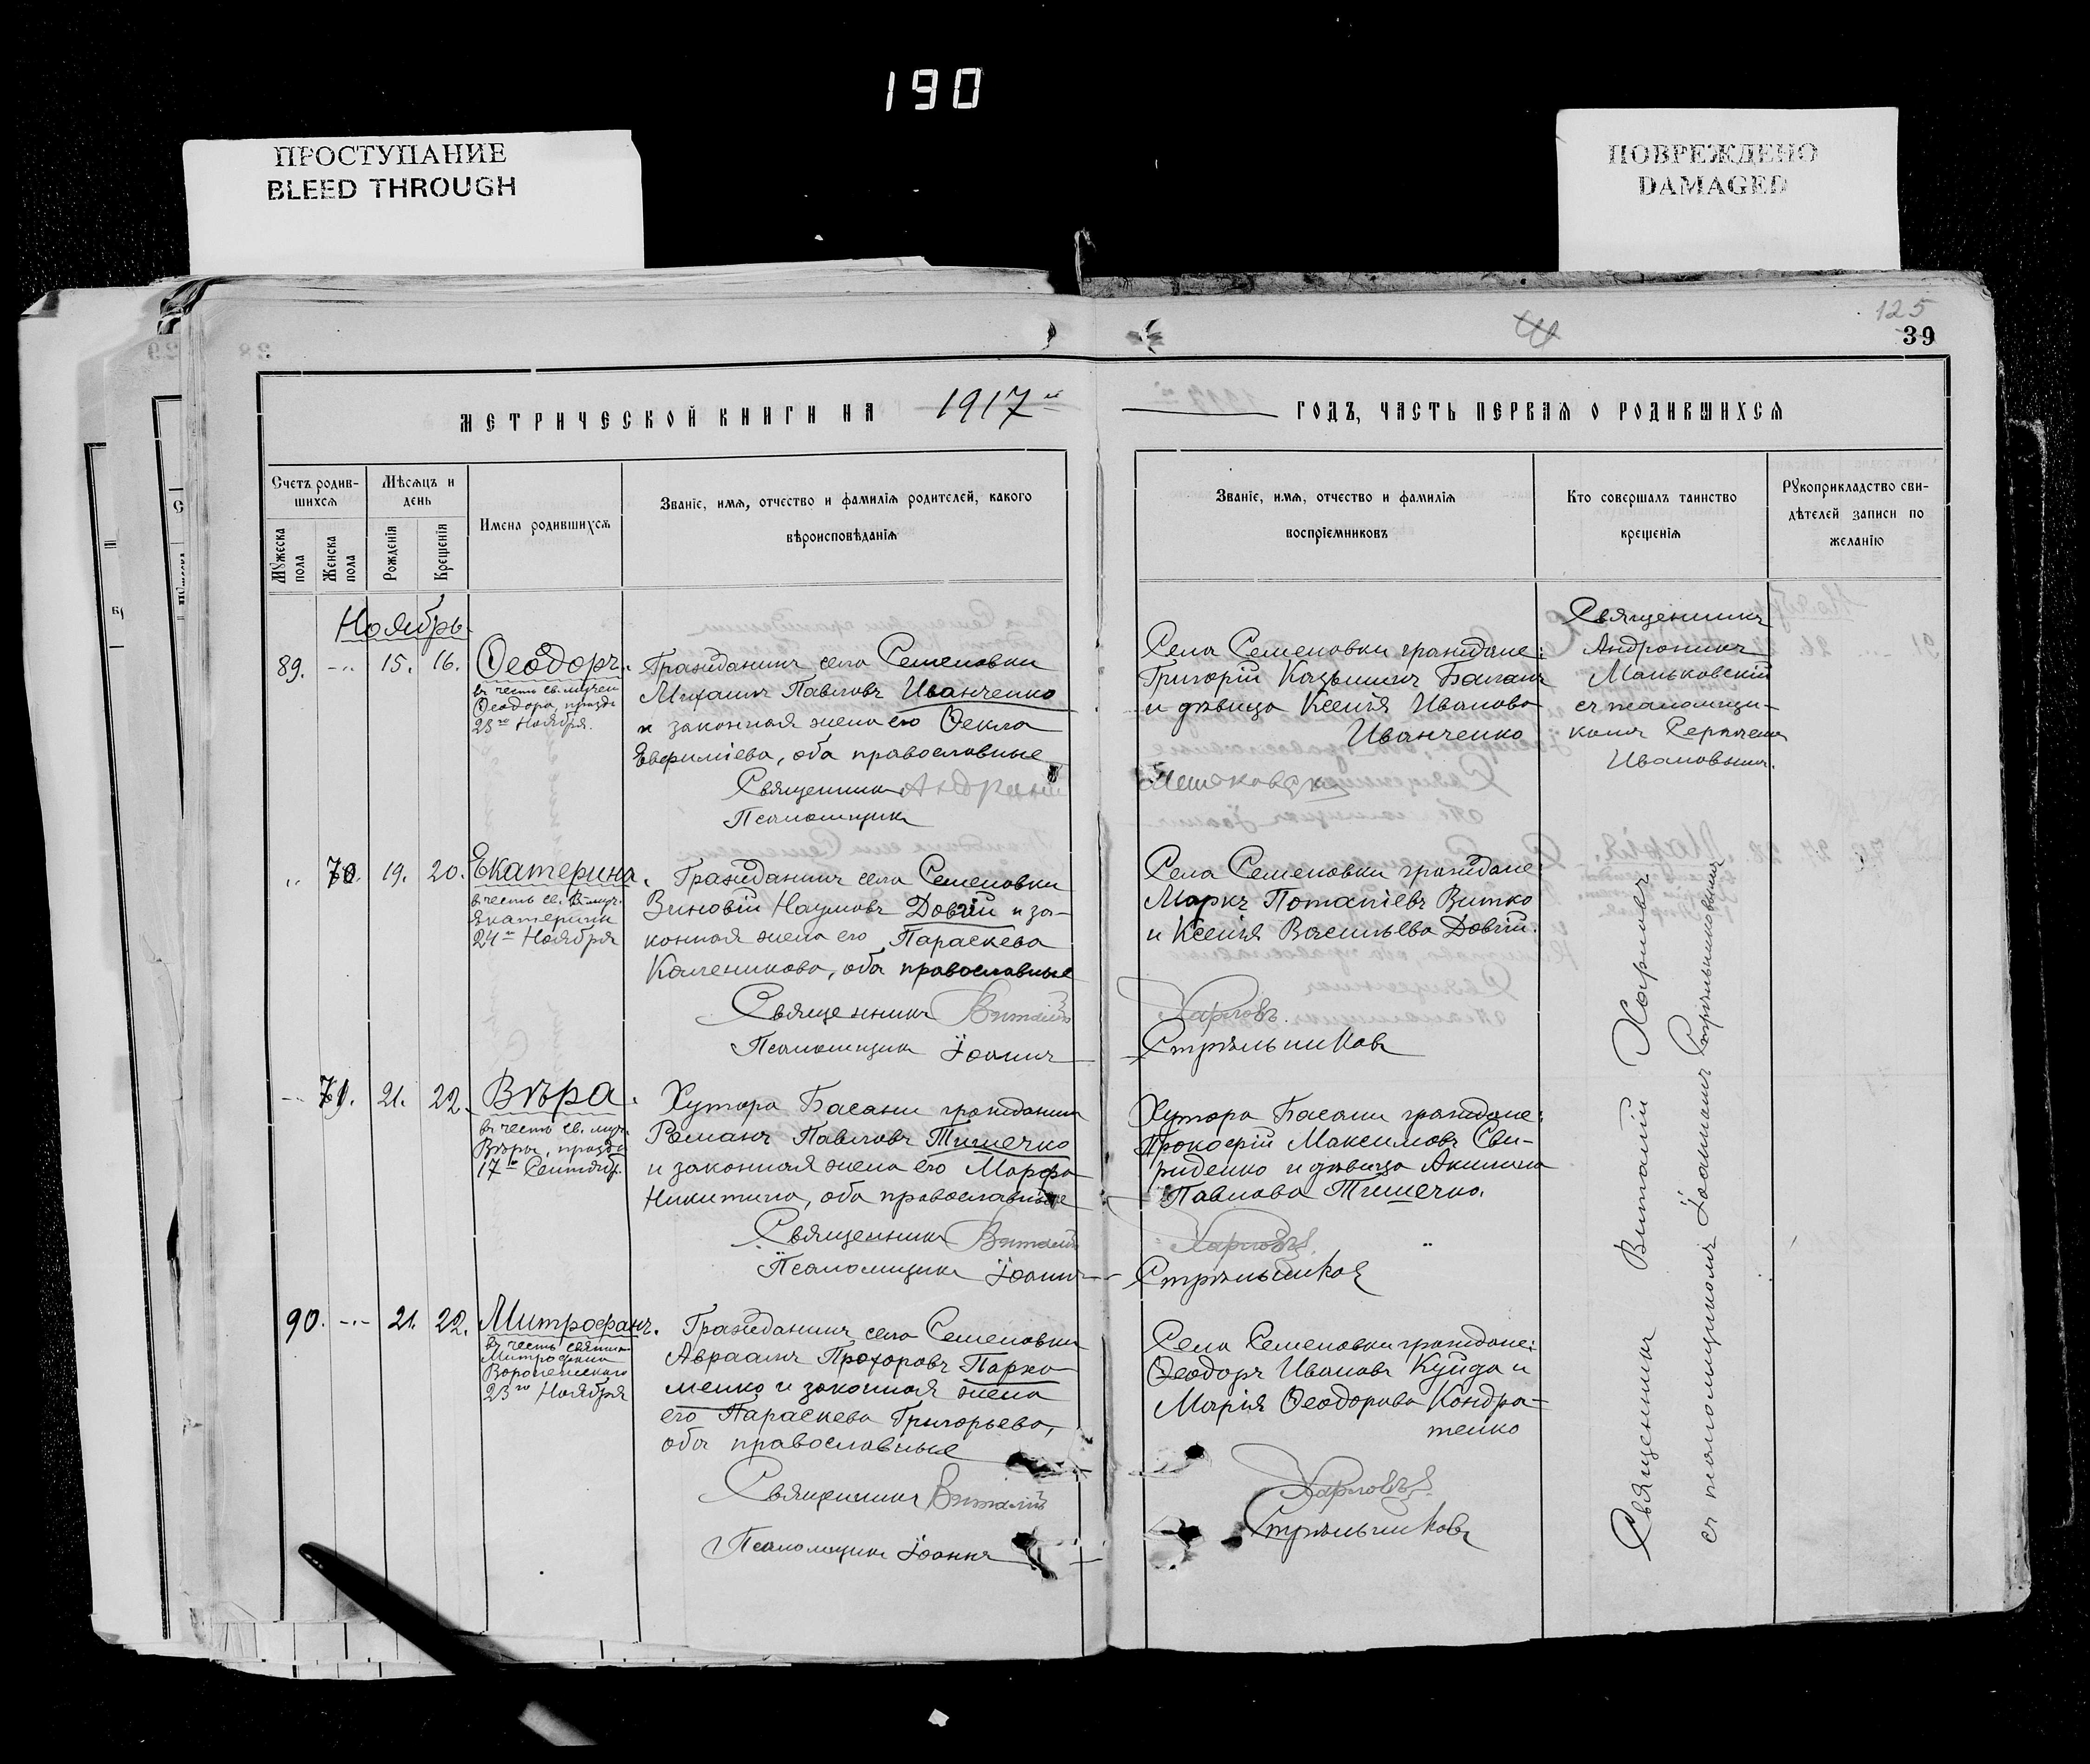 190
ПРОСТУПАНИЕ
BLEED THROUGH
ПОВРЕЖДЕНО
DAMAGED
125
39
МЕТРИЧЕСКОЙ КНИГИ НА 1917й
ГОДЪ, ЧАСТЬ ПЕРВАЯ О РОДИВШИХСЯ
Счетъ родив-
шихся
Мѣсяцъ и
день
Мужеска
пола
Женска
пола
Рожденія
Крещенія
Имена родившихся
Званіе, имя, отчество и фамилія родителей, какого
вѣроисповѣданія
Званіе, имя, отчество и фамилія
воспріемниковъ
Кто совершалъ таинство
крещенія
Рукоприкладство сви-
дѣтелей записи по
желанію
Ноябрь
89. 15. 16. Ѳеодоръ.
въ честь св. мучен
Ѳеодора, празд.
23го Ноября.
Гражданинъ села Семеновки
Михаилъ Павловъ Иванченко
и законная жена его Ѳекла
Евфиміева, оба православные
Священникъ
Псаломщикъ
Села Семеновки граждане:
Григорій Козьминъ
и дѣвица Ксенія Иванова
Иванченко
Священникъ
Андроникъ
Маньковскій
съ псаломщи-
комъ
Ивановымъ.
70. 19. 20. Екатерина.
въ честь св. В. муч.
Екатерины
24го Ноября
Гражданинъ села Семеновки
Зиновій Наумовъ Довгій и за-
конная жена его Параскева
Каленикова, оба православные
Священникъ Виталій
Псаломщикъ Іоаннъ
Села Семеновки граждане:
Маркъ Потапіевъ Витко
и Ксенія Васильева Довгій.
Харповъ.
Стрѣльниковъ
71. 21. 22. Вѣра.
въ честь св. муч.
Вѣры, празд.
17го Сентябр.
Хутора Басани гражданинъ
Романъ Павловъ Тишечко
и законная жена его Марѳа
Никитина, оба православные
Священникъ Виталій
Псаломщикъ Іоаннъ
Хутора Басани граждане:
Прокофій Максимовъ Сви-
риденко и дѣвица Акилина
Павлова Тишечко.
Харповъ
Стрѣльниковъ
90. 21. 22. Митрофанъ.
въ честь святит.
Митрофана
Воронежскаго
23го Ноября
Гражданинъ села Семеновки
Авраамъ Прохоровъ Пархо-
менко и законная жена
его Параскева Григорьева,
оба православные
Священникъ Виталій
Псаломщикъ Іоаннъ
Села Семеновки граждане:
Ѳеодоръ Ивановъ Куйда и
Марія Ѳеодорова Кондра-
тенко
Харповъ
Стрѣльниковъ
Священникъ Виталій Харповъ
съ псаломщикомъ Іоанномъ Стрѣльниковымъ